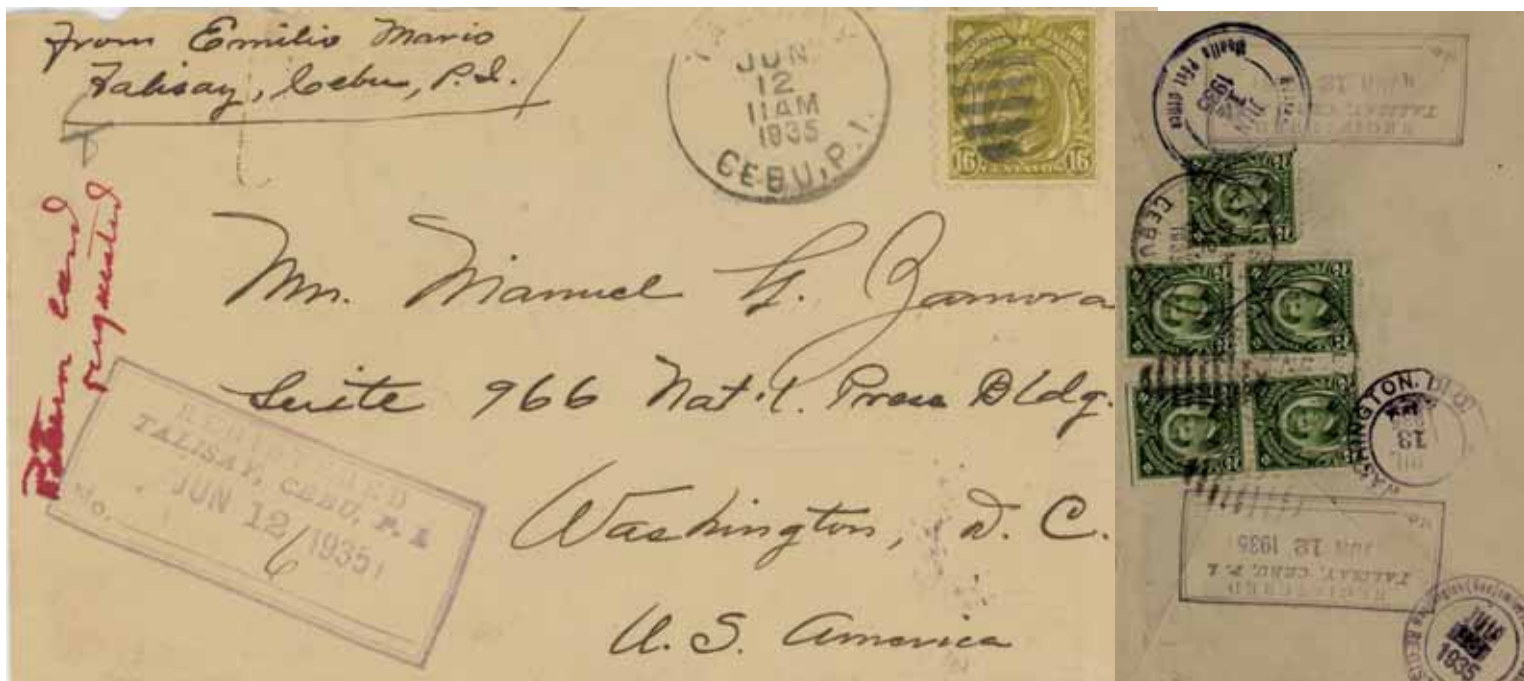 From Emilio Mario
Talisay, Cebu, P.I.
JUN
12
11 AM
1935
CEBU, P.I.
16 CENTAVOS 16
Return card
requested
Mr. Manuel G. Zamora
Suite 966 Nat'l. Press Bldg.
Washington, D. C.
U. S. America
REGISTERED
TALISAY, CEBU, P. I.
JUN 12 1935
No. 6
Manila Post Office
1935
REGISTERED
TALISAY, CEBU, P. I.
JUN 12
No.
CEBU
WASHINGTON, D.C.
13
REGISTERED
TALISAY, CEBU, P. I.
JUN 12 1935
No.
1935